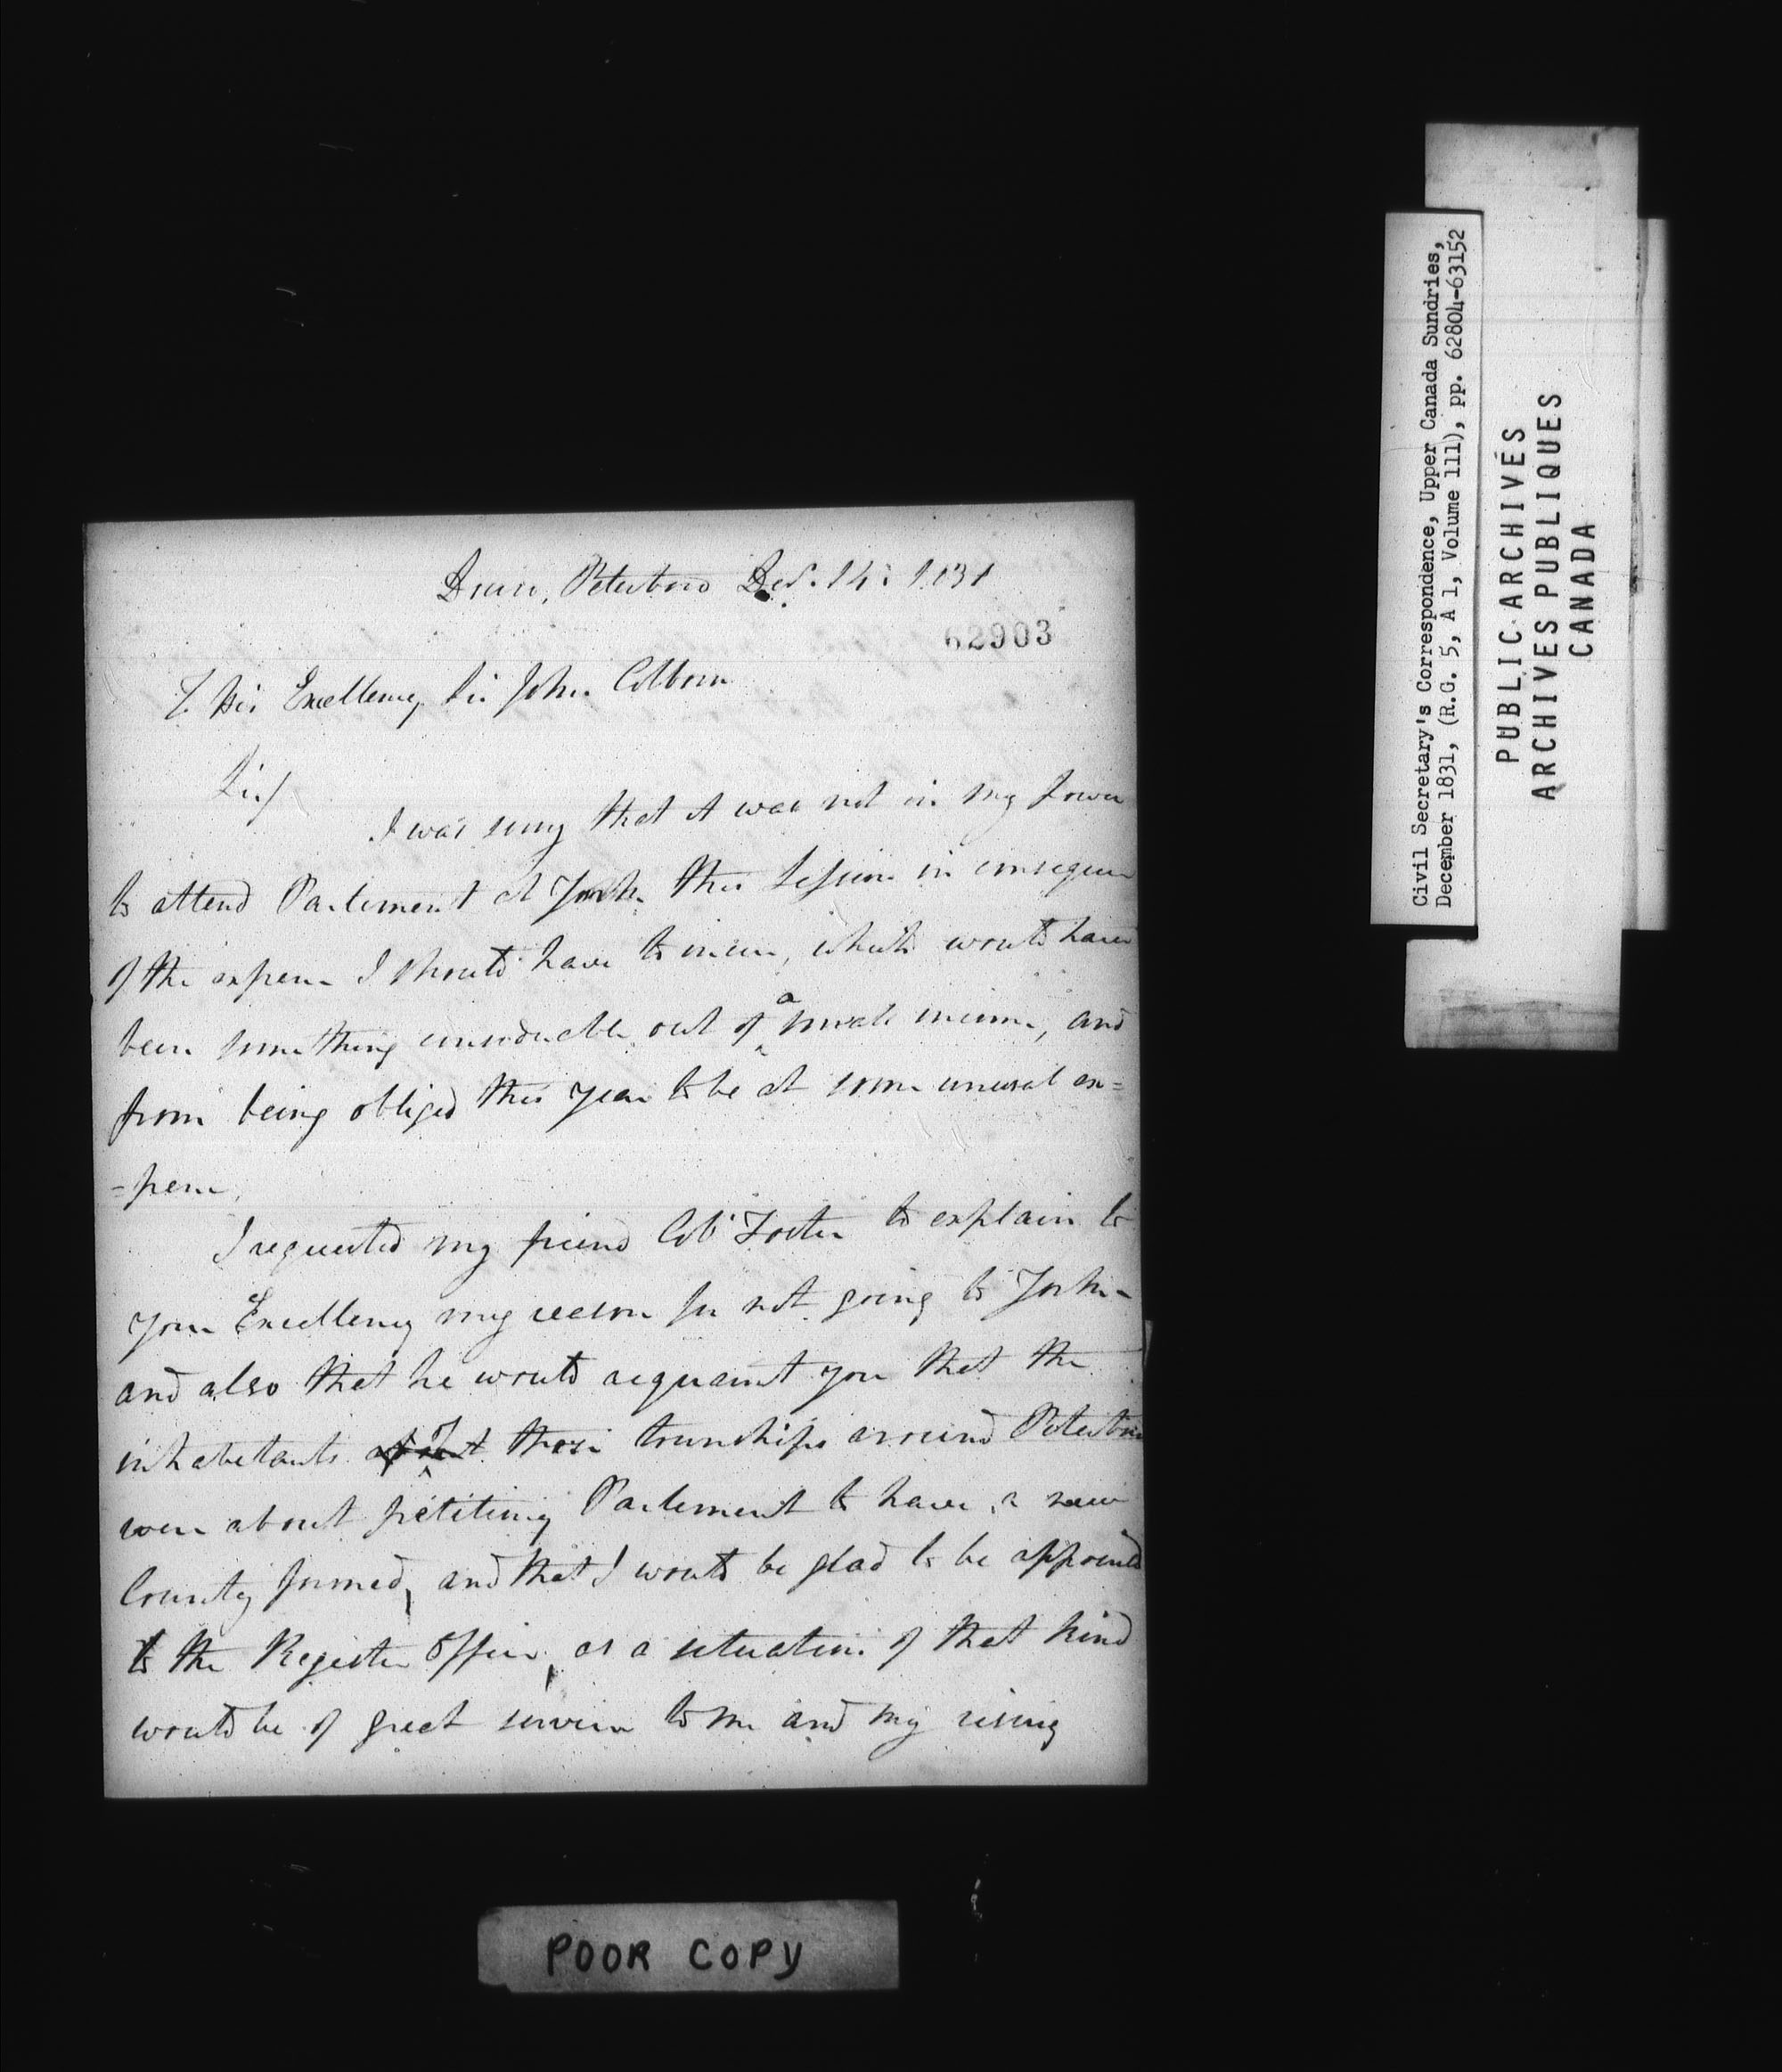 Douro, Peterboro Decr. 14: 1831
62903
To His Excellency Sir John Colborn
Sir/
I was sorry that it was not in my power
to attend Parlement at York this Session in consequence
of the expense I should have to incur, which would have
been something considerable out of a small income, and
from being obliged this year to be at some unusual ex=
=pense,
I requested my friend Col. Foster to explain to
your Excellency my reason for not going to York
and also that he would acquaint you that the
inhabetants of those townships around Peterboro
were about petiting Parlement to have a new
County formed, and that I would be glad to be appointed
to the Register Office, as a situation of that kind
would be of great service to me and my rising
POOR COPY
Civil Secretary's Correspondence, Upper Canada Sundries,
December 1831, (R.G. 5, A 1, Volume 111), pp. 62804-63152
PUBLIC ARCHIVES
ARCHIVES PUBLIQUES
CANADA